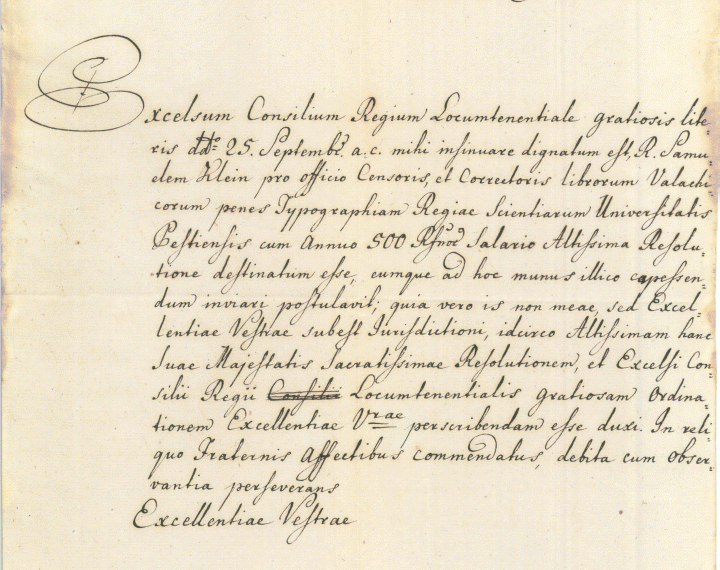 Excelsum Consilium Regium Locumtenentiale gratiosis lite-
ris ddto 25. Septembr. a. c. mihi insinuare dignatum est, R. Samu-
elem Klein pro officio Censoris, et Correctoris librorum Valachi-
corum penes Typographiam Regiae Scientiarum Universitatis
Pestiensis cum Annuo 500 Rfnor Salario Altissima Resolu-
tione destinatum esse, eumque ad hoc munus illico capessen-
dum inviari postulavit; quia vero is non meae, sed Excel-
lentiae Vestrae subest Jurisdictioni, idcirco Altissimam hanc
Suae Majestatis Sacratissimae Resolutionem, et Excelsi Con-
silii Regii Consilii Locumtenentialis gratiosam Ordina-
tionem Excellentiae Vrae perscribendam esse duxi. In reli-
quo Fraternis Affectibus commendatus, debita cum obser-
vantia perseverans
Excellentiae Vestrae